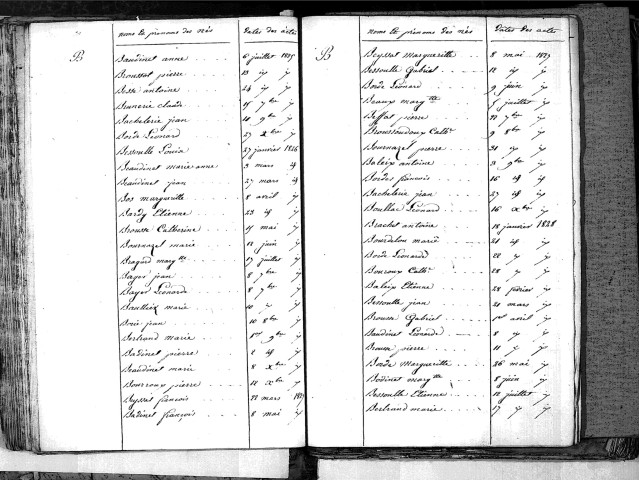 noms & prénoms des nés dates des actes
B Baudinet anne 6 juillet 1825
Broussat pierre 13 id
Besse antoine 24 id
Bonnerie claude 15 7bre
Bachelerie jean 10 9bre
Borde Léonard 27 xbre
Bessoulle Louisa 27 janvier 1826
Beaudinet marie anne 2 mars
Beaudinet jean 27 mars
Bos marguerite 8 avril
Bardy Etienne 23 id
Brousse Catherine 15 mai
Bournazel marie 12 juin
Bragard marg.tte 17 juillet
Bayer jean 8 7bre
Bayer Léonard 8 7bre
marie 10
Borie jean 10 8bre
Bertrand marie 1er 9bre
Badinet pierre 2 id
Beaudinet marie 8 xbre
Bourroux pierre 12 xbre
Beyssat françois 11 mars
Badinet françois 8 mai
noms & prénoms des nés Dates des actes
B Beyssat marguerite 8 mai
Bessoulle Gabriel 12 id
Borde Léonard 9 juin
Beaux marg.tte 5 juillet
Beffat pierre 11 7bre
Broussoudoux Cath. 9 8bre
Bournazel pierre 31
Baleix antoine 3 9bre
Bordes françois 16 id
Bachelerie jean 27 id
Boullac Léonard 16 xbre
Brachet antoine 18 janvier 1828
Bourdelou marie 21 id
Borde Léonarde 22
Bouroux Cath. 28
Baleix Etienne 28 février
Bessoulle jean 21 mars
Brousse Gabriel 1er avril
Baudinet Léonarde 8
Brousse pierre 11
Borde marguerite 26 mai
Bodinet marg.tte 8 juin
Bessoulle Etienne 12 juillet
Bertrand marie 17